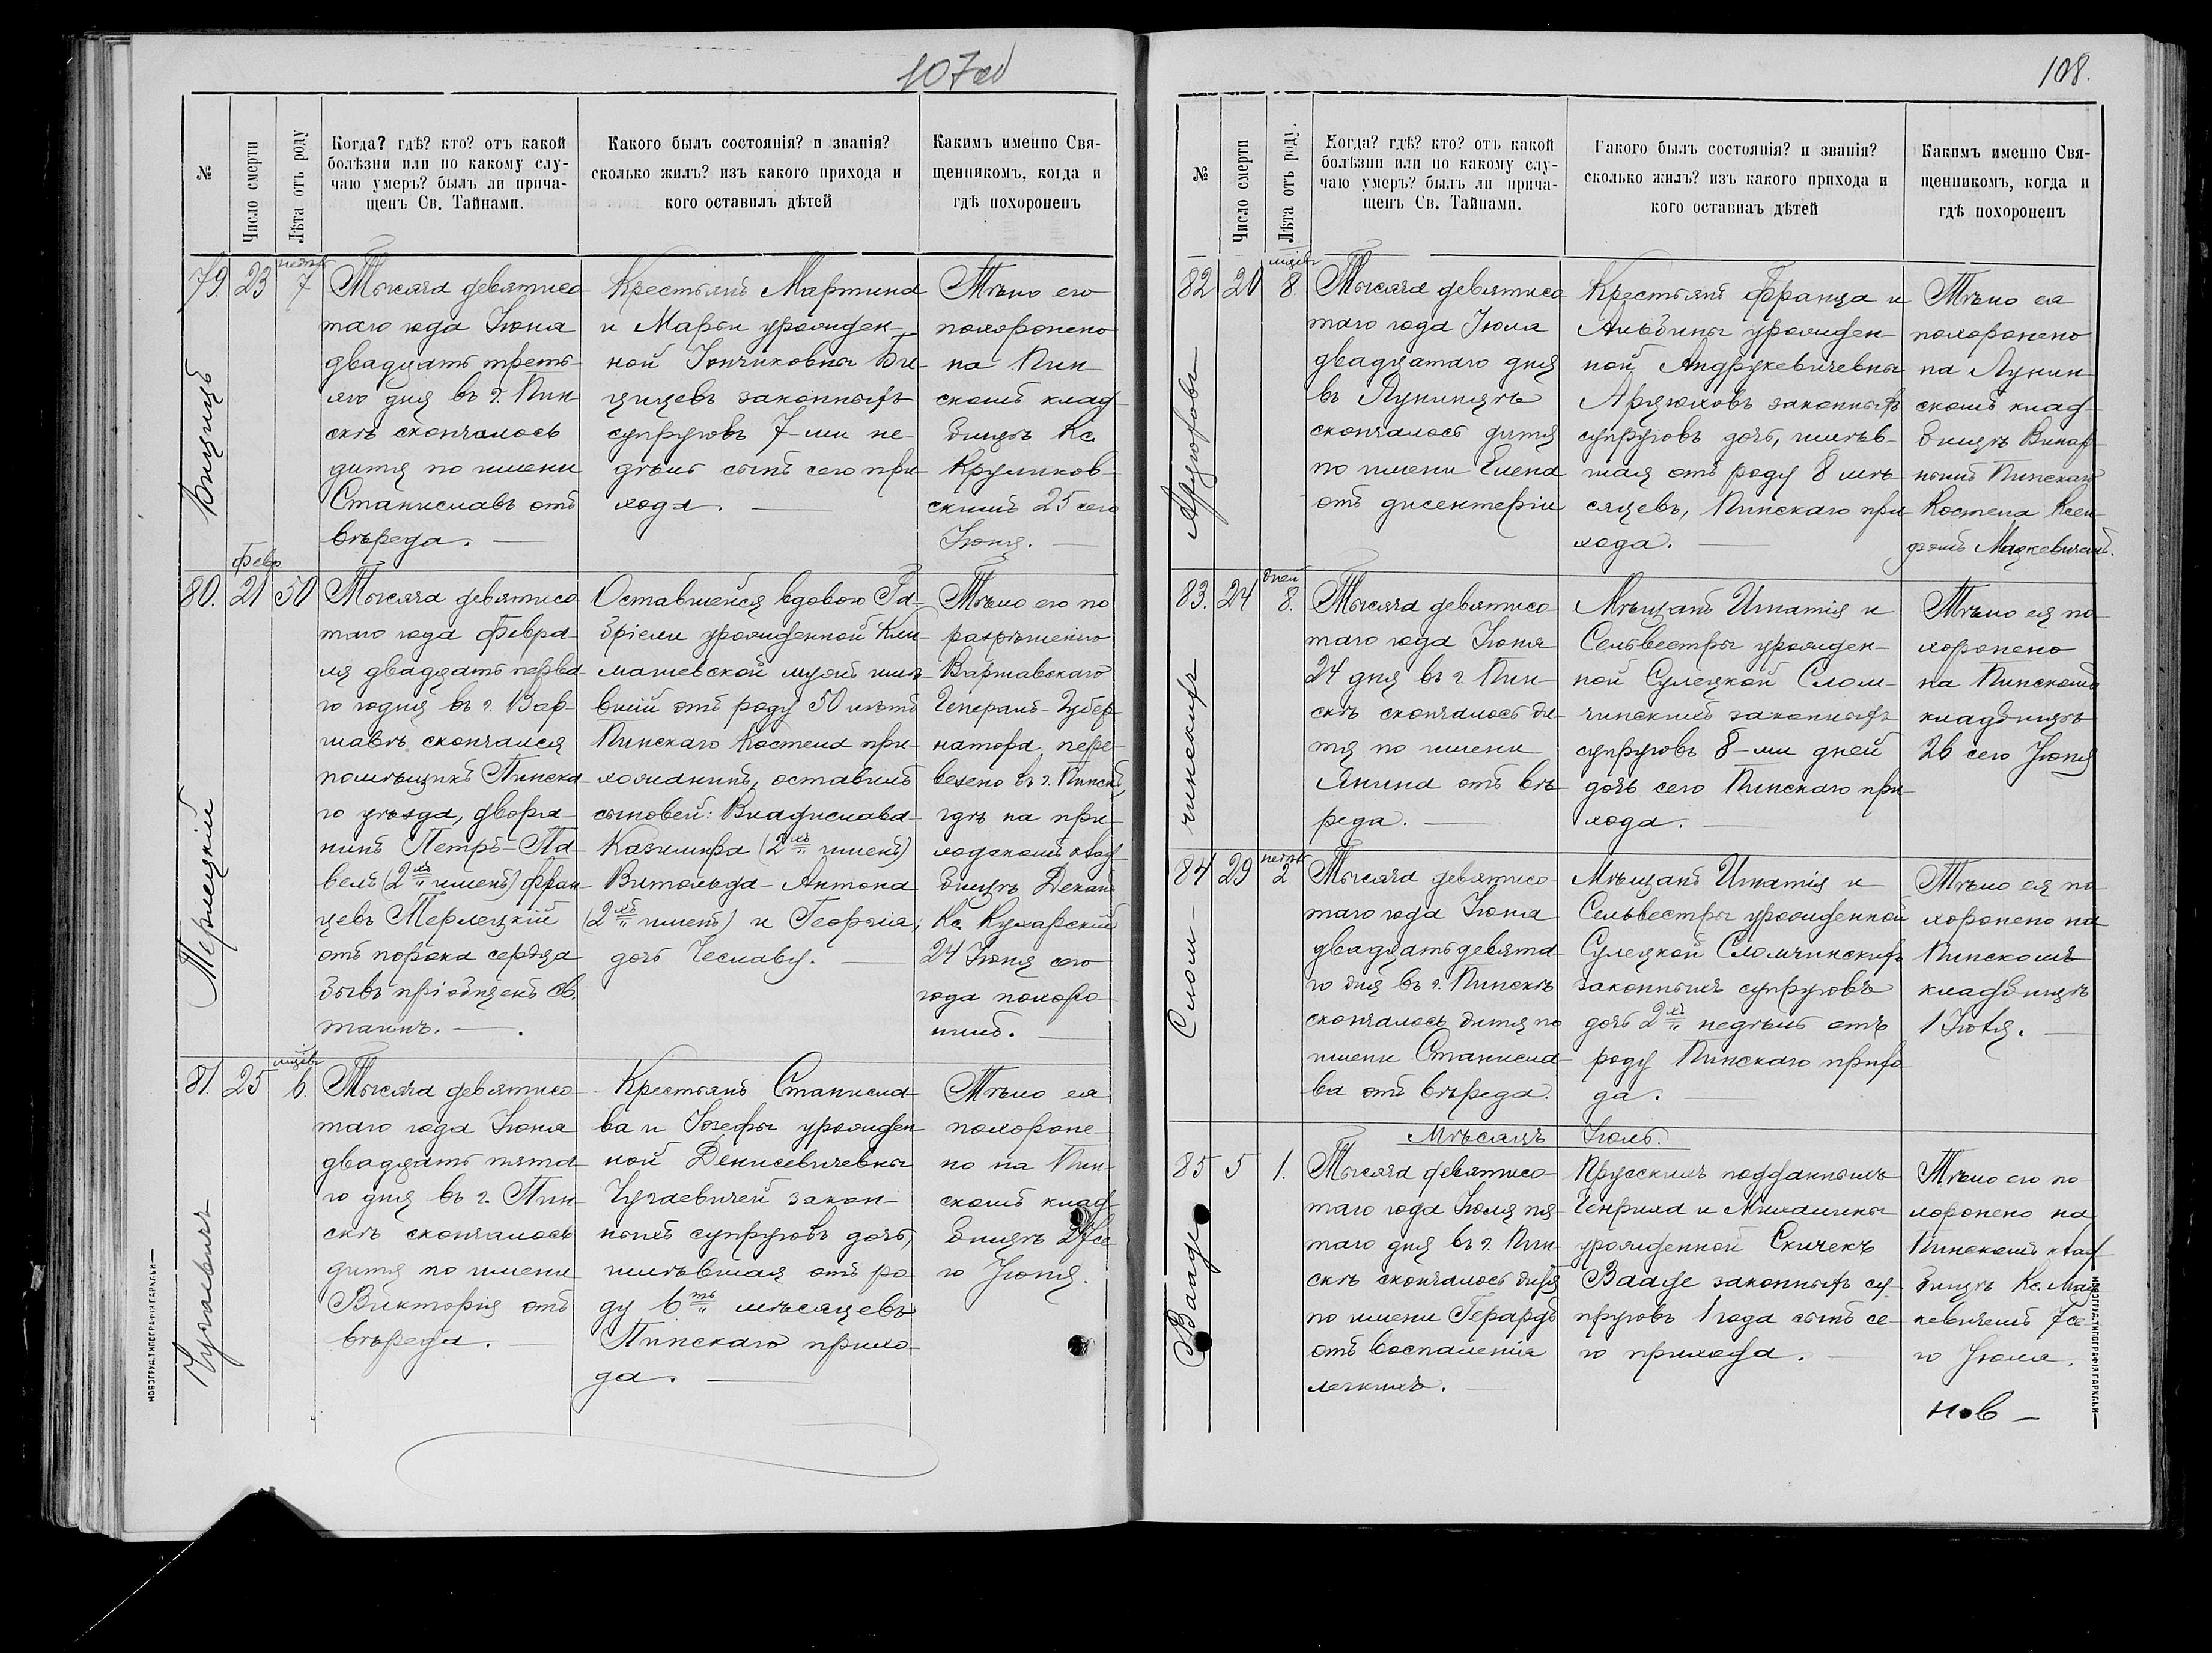 107об
№
Число смерти
Лѣта отъ роду
Когда? гдѣ? кто? отъ какой
болѣзни или по какому слу-
чаю умеръ? былъ ли прича-
щенъ Св. Тайнами.
Какого былъ состоянія? и званія?
сколько жилъ? изъ какого прихода и
кого оставилъ дѣтей
Какимъ именно Свя-
щенникомъ, когда и
гдѣ похороненъ
79. 23 недѣль 7
Тысяча девятисо
таго года Іюня
двадцать треть-
яго дня въ г. Пин-
скѣ скончалось
дитя по имени
Станиславъ отъ
вѣреда. —
Крестьянъ Мартина
и Марьи урожден-
ной Би-
цицевъ законныхъ
супруговъ 7-ми не-
дѣль сынъ сего при-
хода. —
Тѣло его
похоронено
на Пин-
скомъ клад-
бищѣ Кс.
Круликов-
скимъ 25 сего
Іюня. —
80. Февр 21 50
Терлецкій
Тысяча девятисо
таго года Февра-
ля двадцать перва-
го дня въ г. Вар-
шавѣ скончался
помѣщикъ Пинска-
го уѣзда, дворя-
нинъ Петръ-Па-
велъ (2хъ именъ) Фран-
цевъ Терлецкій
отъ порока сердца
бывъ пріобщенъ св.
таинъ. —
Оставшейся вдовою Га-
бріели урожденной Кли-
машевской мужъ имѣ-
вшій отъ роду 50 лѣтъ
Пинскаго Костела при-
хожанинъ, оставилъ
сыновей: Владислава-
Казимира (2хъ именъ)
Витольда-Антона
(2хъ именъ) и Георгія,
дочь Чеславу. —
Тѣло его по
разрѣшенію
Варшавскаго
Генералъ-Губер-
натора, пере-
везено въ г. Пинскъ,
гдѣ на при-
ходскомъ клад-
бищѣ Декан
Кс. Кухарскій
24 Іюня сего
года похоро-
нилъ. —
81. 25 мѣсяцевъ 6.
Тысяча девятисо-
таго года Іюня
двадцать пята-
го дня въ г. Пин-
скѣ скончалось
дитя по имени
Викторія отъ
вѣреда. —
Крестьянъ Станисла-
ва и Юзефы урожден
ной Денисевичевны
закон-
ныхъ супруговъ дочь,
имѣвшая отъ ро-
ду 6ть мѣсяцевъ
Пинскаго прихо-
да. —
Тѣло ея
похороне-
но на Пин-
скомъ клад-
бищѣ 27 се
го Іюня.
НОВОГРУД. ТИПОГРАФІЯ ГАРКАВИ—
108.
№
Число смерти
Лѣта отъ роду.
Когда? гдѣ? кто? отъ какой
болѣзни или по какому слу-
чаю умеръ? былъ ли прича-
щенъ Св. Тайнами.
Какого былъ состоянія? и званія?
сколько жилъ? изъ какого прихода и
кого оставилъ дѣтей
Какимъ именно Свя-
щенникомъ, когда и
гдѣ похороненъ
82 20 8.
Тысяча девятисо
таго года Іюля
двадцатаго дня
въ Лунинцѣ
скончалось дитя
по имени Елена
отъ дисентеріи
Крестьянъ Франца и
Альбины урожден-
ной Андрукевичевны
Арцюховъ законныхъ
супруговъ дочь, имѣв-
шая отъ роду 8 мѣ-
сяцевъ, Пинскаго при
хода. —
Тѣло ея
похоронено
на Лунин-
скомъ клад-
бищѣ Викар-
нымъ Пинскаго
Костела Ксен-
дзомъ Мацкевичемъ.
83. 24 дней 8.
Тысяча девятисо
таго года Іюня
24 дня въ г. Пин-
скѣ скончалось ди-
тя по имени
Янина отъ вѣ-
реда. —
Мѣщанъ Игнатія и
Сельвестры урожден-
ной Сулецкой Слом-
чинскихъ законныхъ
супруговъ 8-ми дней
дочь сего Пинскаго при
хода. —
Тѣло ея по-
хоронено
на Пинскомъ
кладбищѣ
26 сего Іюня
84 29 недѣль 2
Слом-чинскихъ
Тысяча девятисо-
таго года Іюня
двадцать девята-
го дня въ г. Пинскѣ
скончалось дитя по
имени Станисла-
ва отъ вѣреда.
Мѣщанъ Игнатія и
Сельвестры урожденной
Сулецкой Сломчинскихъ
законныхъ супруговъ
дочь 2хъ недѣль отъ
роду Пинскаго прихо
да. —
Тѣло ея по-
хоронено на
Пинскомъ
кладбищѣ
1 Іюля. —
Мѣсяцъ Іюль.
85 5 1.
Вааде
Тысяча девятисо-
таго года Іюля пя-
таго дня въ г. Пин-
скѣ скончалось дитя
по имени Герардъ
отъ воспаленія
легкихъ. —
Прусскихъ подданныхъ
Генриха и Михалины
урожденной Скичекъ
Вааде законныхъ су-
пруговъ 1 года сынъ се-
го прихода. —
Тѣло его по-
хоронено на
Пинскомъ клад-
бищѣ Кс. Мац-
кевичемъ 7 се
го Іюля.
НОВОГРУД. ТИПОГРАФІЯ ГАРКАВИ—